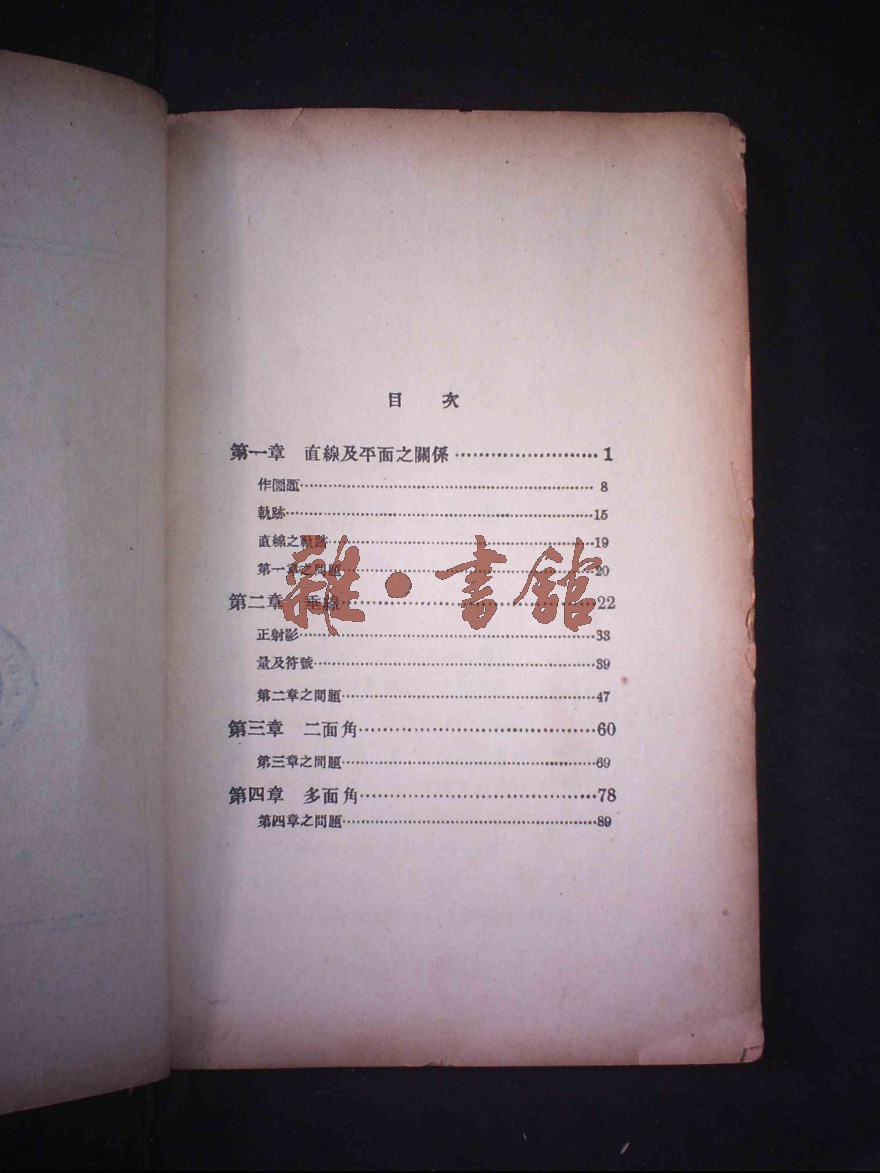 目 次
第一章 直線及平面之關係························1
作圖題························8
軌跡························15
直線之軌跡························19
第一章之問題························20
第二章 垂線························22
正射影························33
量及符號························39
第二章之問題························47
第三章 二面角························60
第三章之問題························69
第四章 多面角························78
第四章之問題························89
雜·書館